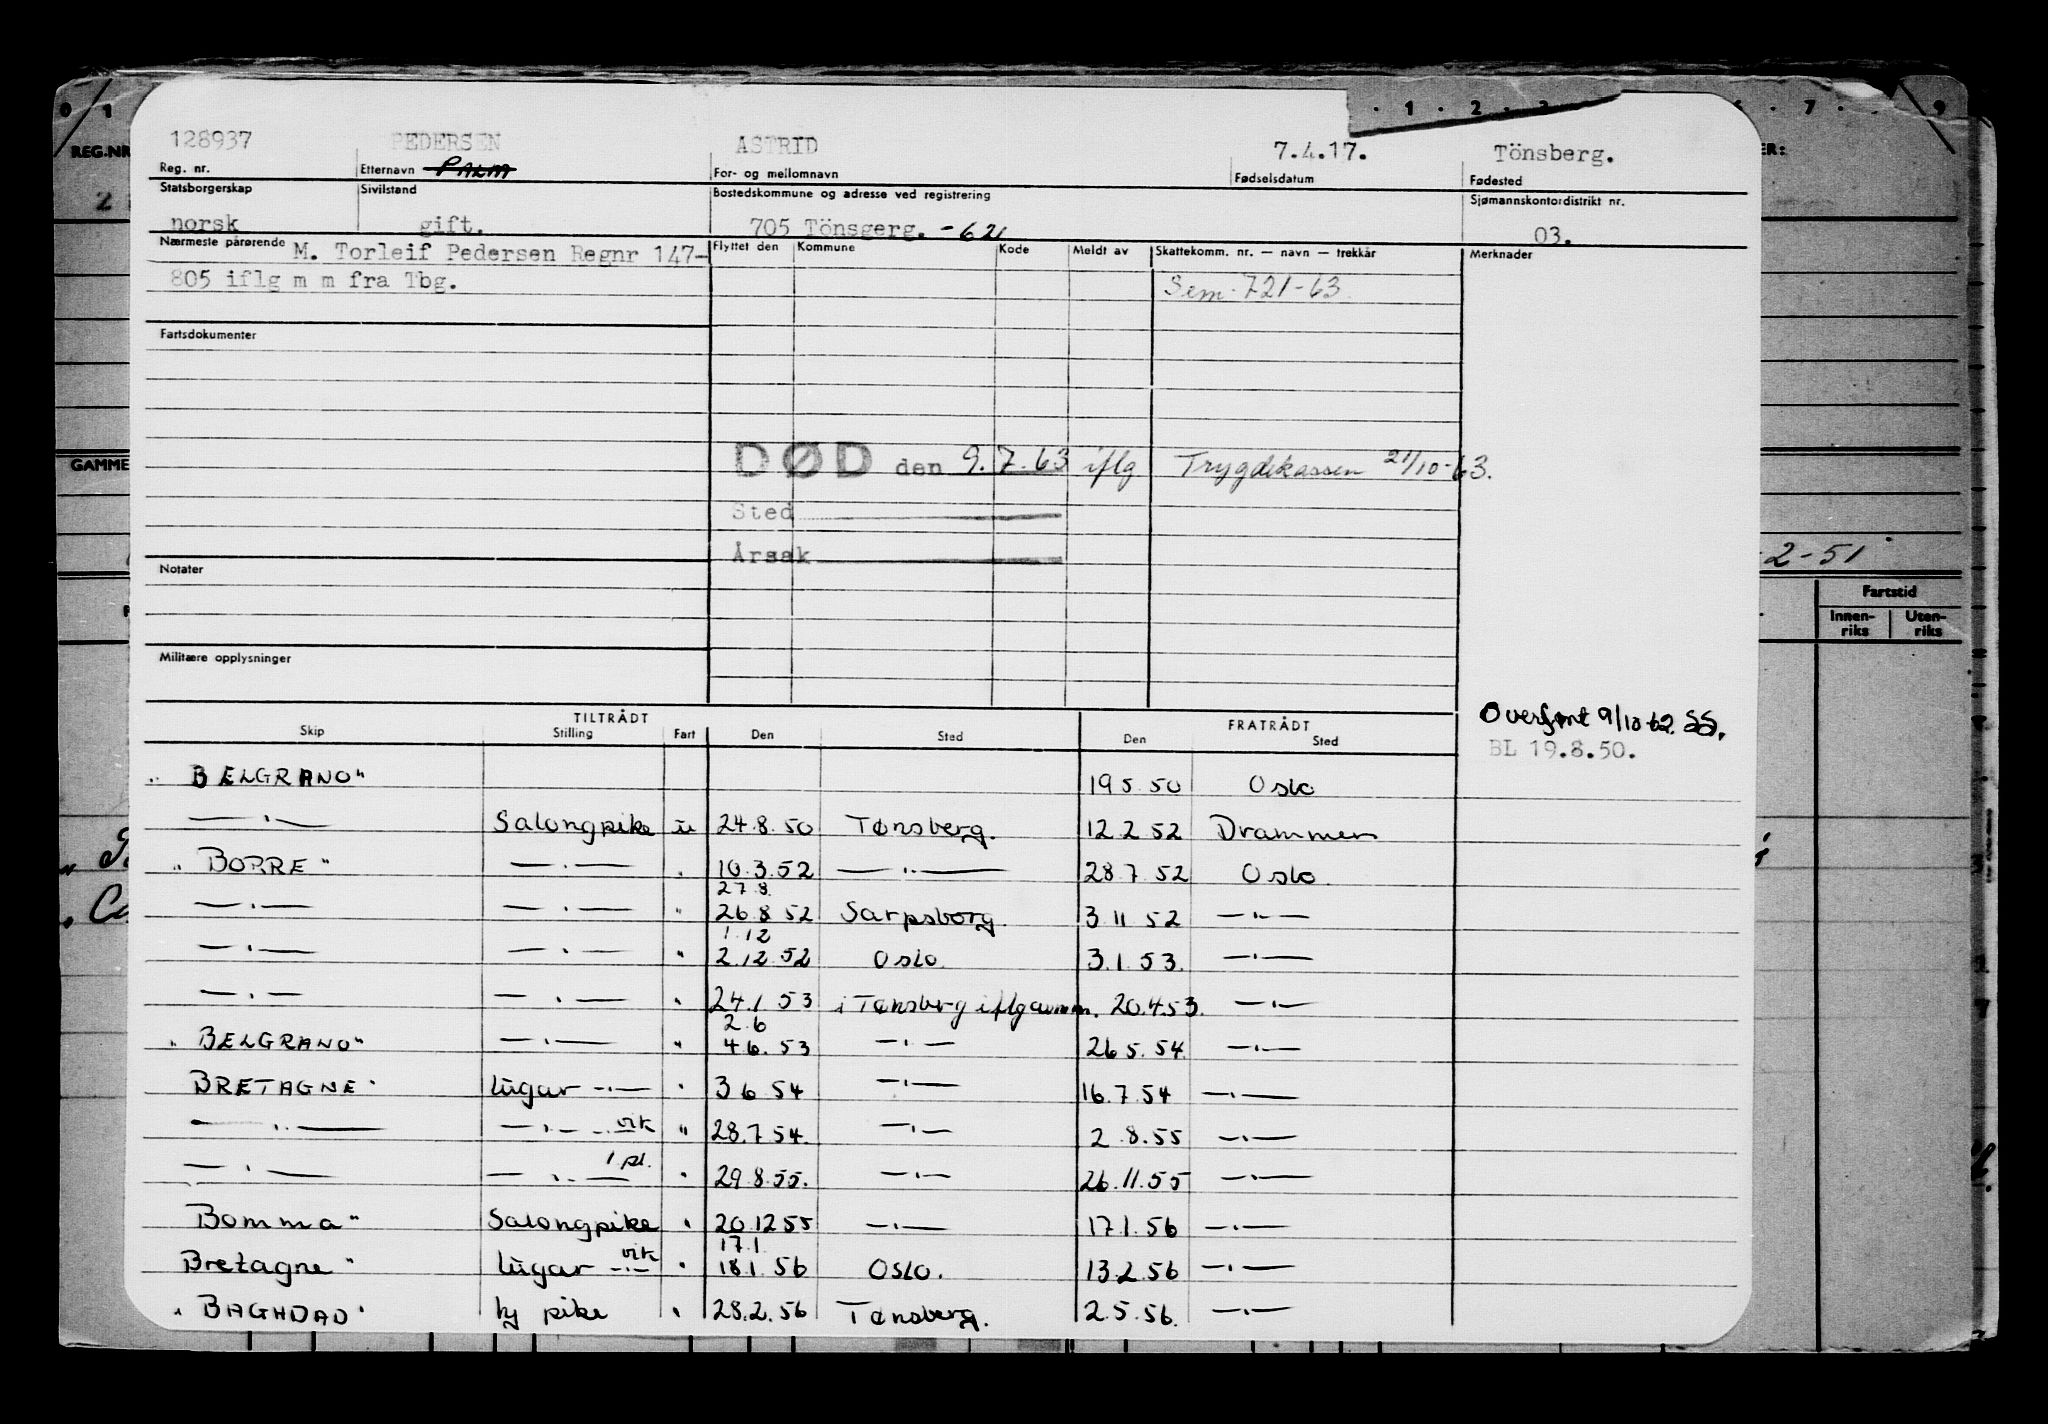 0 1 . 1 . 2 . 3 6 . 7 . 9
128937 PEDERSEN ASTRID 7.4.17. Tönsberg.
REG.NR ER:
Reg. nr. Etternavn PALM For- og mellomnavn Fødselsdatum Fødested
Statsborgerskap Sivilstand Bostedskommune og adresse ved registrering Sjømannskontordistrikt nr.
2 norsk gift. 705 Tönsgerg. -621 03.
Nærmeste pårørende M. Torleif Pedersen Regnr 147- Flyttet den Kommune Kode Meldt av Skattekomm. nr. — navn — trekkår Merknader
805 iflg m m fra Tbg. Sem. 721-63
Fartsdokumenter
GAMME DØD den 9.7.63 iflg Trygdekassen 21/10-63.
Sted
Årsak
-2-51
Notater
Fartstid
Innen-riks Uten-riks
Militære opplysninger
TILTRÅDT FRATRÅDT Overført 9/10-62. SS.
Skip Stilling Fart Den Sted Den Sted
BL 19.8.50.
" BELGRANO" 19 5 50 Oslo
— " — Salongpike u 24.8.50 Tønsberg. 12 2 52 Drammen
" BORRE" — " — . 10.3.52 — " — 28.7.52 Oslo.
27 8.
— " — — " — " 26 8 52 Sarpsborg. 3 11 52 — " —
1.12
— " — — " — " 2.12.52 Oslo. 3.1.53. — " —
— " — — " — " 24.1.53 i Tønsberg iflg avmm. 20.4.53. — " —
2.6
" BELGRANO" — " — " 4 6.53 — " — 26 5.54. — " —
BRETAGNE" lugar — " — " 3 6 54 — " — 16.7.54 — " —
— " — — " — vik " 28.7 54. — " — 2 8.55 — " —
— " — — " — 1 pl. " 29 8.55. — " — 26.11.55 — " —
Bomma" Salongpike " 20.12 55 — " — 17.1.56 — " —
17.1
Bretagne" lugar — " — vik " 18.1.56 Oslo. 13.2.56 — " —
" BAGHDAD" by pike " 28.2.56 Tønsberg. 2.5.56. — " —